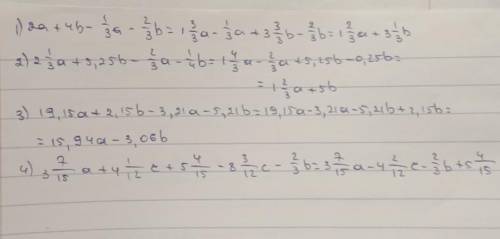 1) 2a + 4b - 1/3 a - 2/3 b = 1 3/3 a - 1/3 a + 3 3/3 b - 2/3 b = 1 2/3 a + 3 1/3 b
2) 2 1/3 a + 5,25b - 2/3 a - 1/4 b = 1 4/3 a - 2/3 a + 5,25b - 0,25b =
= 1 2/3 a + 5b
3) 19,15a + 2,15b - 3,21a - 5,21b = 19,15a - 3,21a - 5,21b + 2,15b =
= 15,94a - 3,06b
4) 3 7/15 a + 4 1/12 c + 5 4/15 - 8 3/12 c - 2/3 b = 3 7/15 a - 4 2/12 c - 2/3 b + 5 4/15